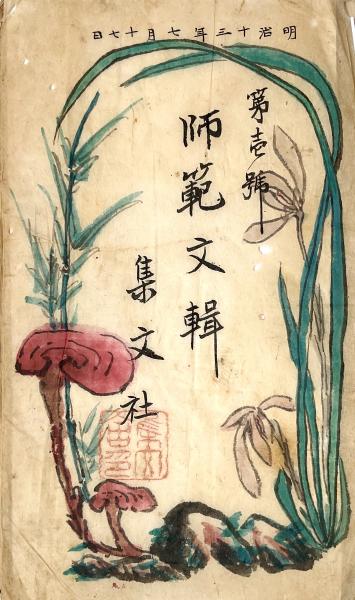 明治十三年七月十七日
第壱號
師範文輯
集文社